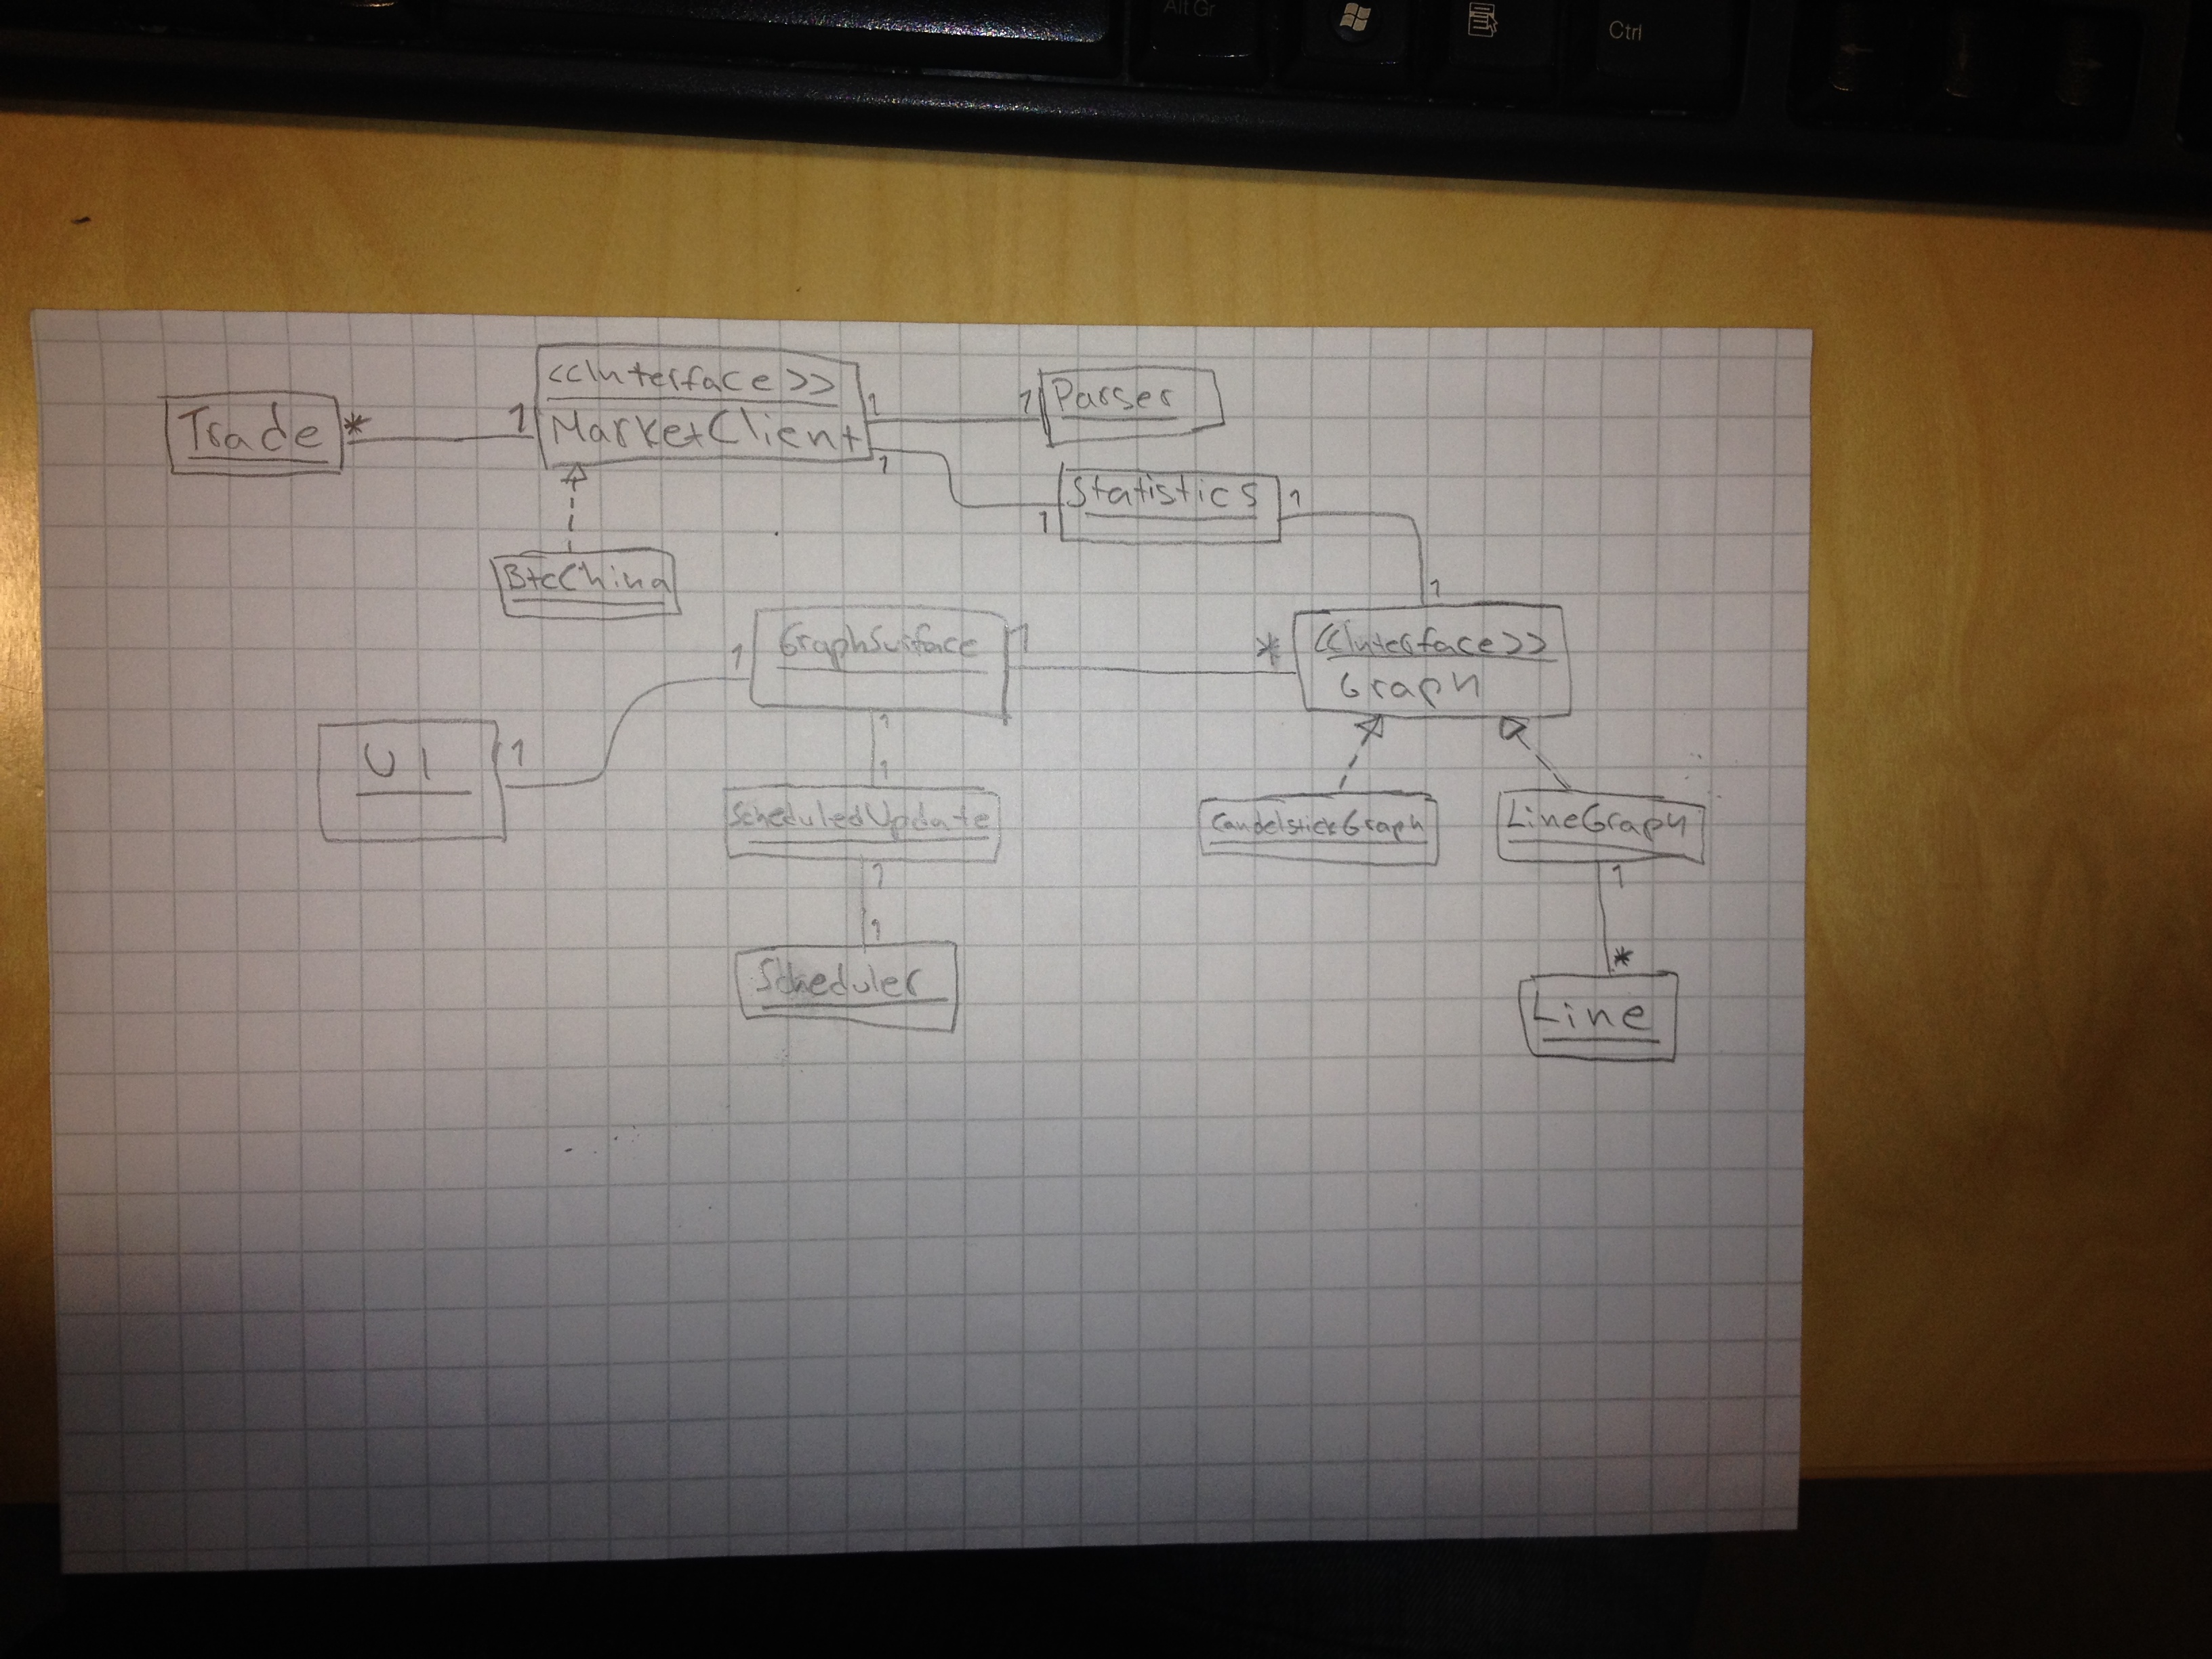 Alt Gr
Ctrl
<<Interface>>
MarketClient
Trade
*
1
1
1
Parser
1
1
Statistics
1
BtcChina
1
GraphSurface
1
1
*
<<Interface>>
Graph
UI
1
1
1
ScheduledUpdate
CandelstickGraph
LineGraph
1
1
1
*
Scheduler
Line